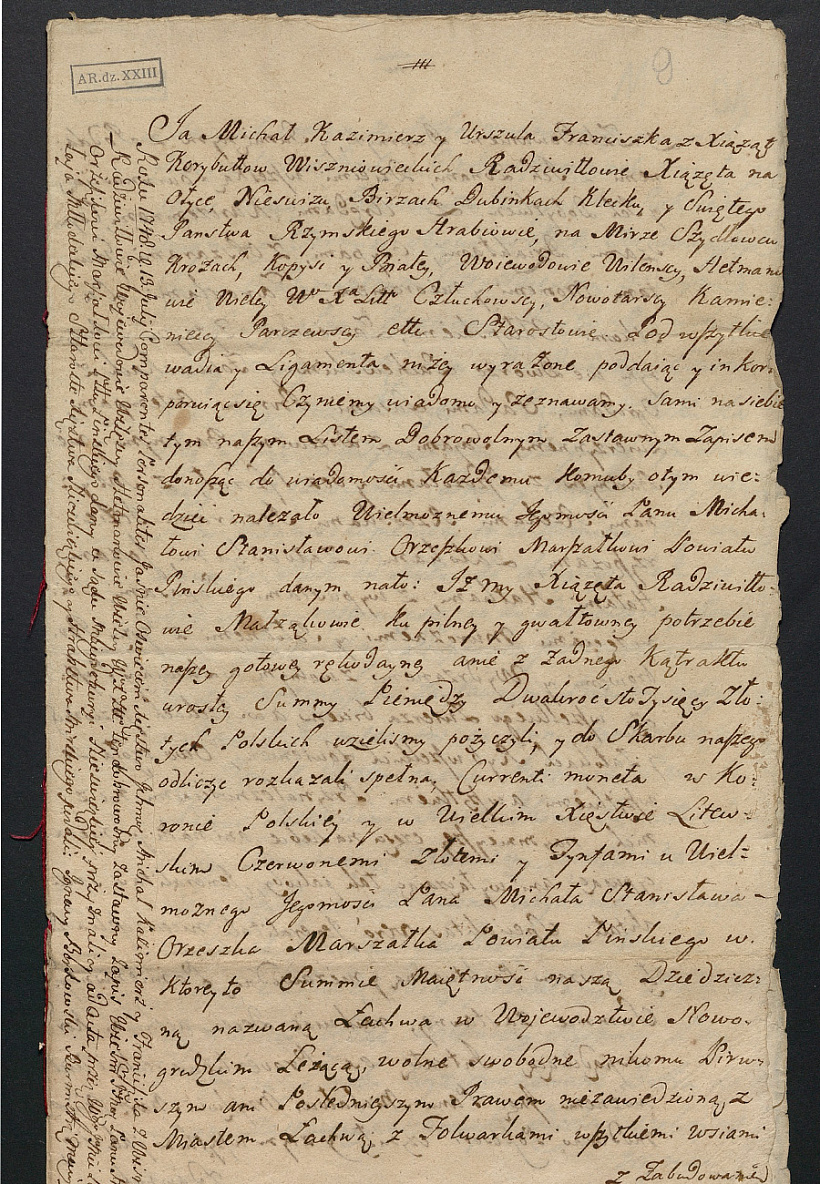 AR.dz.XXIII
III
9
Ja Michał Kazimierz y Urszula Franciszka z Xiążąt
Korybuttow Wiszniowieckich Radziwiłłowie Xiążęta na
Ołyce Nieswizu Birzach Dubinkach Klecku, y Swiętego
Panstwa Rzymskiego Hrabiowie, na Mirze Szydłowcu
Krożach, Kopysi y Białey, Woiewodowie Wilenscy, Hetmano
wie Wielcy Wo Xa Litto Człuchowscy, Nowotarscy Kamie:
nieccy Parczewscy ettc Starostowie. Pod wszytkie
wadia y Ligamenta niżey wyrażone poddaiąc y inkor:
poruiąc się Czyniemy wiadomo y zeznawamy. Sami na siebie
tym naszym Listem Dobrowolnym Zastawnym Zapisem
donosząc do wiadomosci Każdemu Komuby o tym wie:
dzieć należało Wielmożnemu Jegomosci Panu Micha:
łowi Stanisławowi Orzeszkowi Marszałkowi Powiatu
Pinskiego danym na to: Iż my Xiążęta Radziwiłło:
wie Małżąkowie Ku pilney y gwałtowney potrzebie
naszey gotowey rękodayney a nie z żadnego Kątraktu
urosłey Summy Pieniędzy Dwakroć sto Tysięcy Zło:
tych Polskich wzielismy pożyczyli, y do Skarbu naszego
odliczyc rozkazali spełna, Currenti moneta w Ko:
ronie Polskiey y w Wielkim Xięstwie Litew:
skim Czerwonemi Złotemi y Tynfami u Wiel:
możnego Jegomosci Pana Michała Stanisława
Orzeszka Marszałka Powiatu Pinskiego w
ktorey to Summie Maiętnosć naszą Dziedzicz:
ną nazwaną Lachwa w Woiewodztwie Nowo:
grodzkim Leżącą, wolne swobodne nikomu Pirw:
szym ani Poslednieyszym Prawem niezawiedzioną, z
Miastem Lachwą, z Folwarkami wszytkiemi wsiami
z Zabudowaniem
Roku 1748 13 Julij Comparentes Personaliter Jasnie Oswieceni Michał Kazimierz y Franciszka z
Radziwiłłowie Woiewodowie Hetmanowie Wielcy ten dobrowolny zastawny Zapis